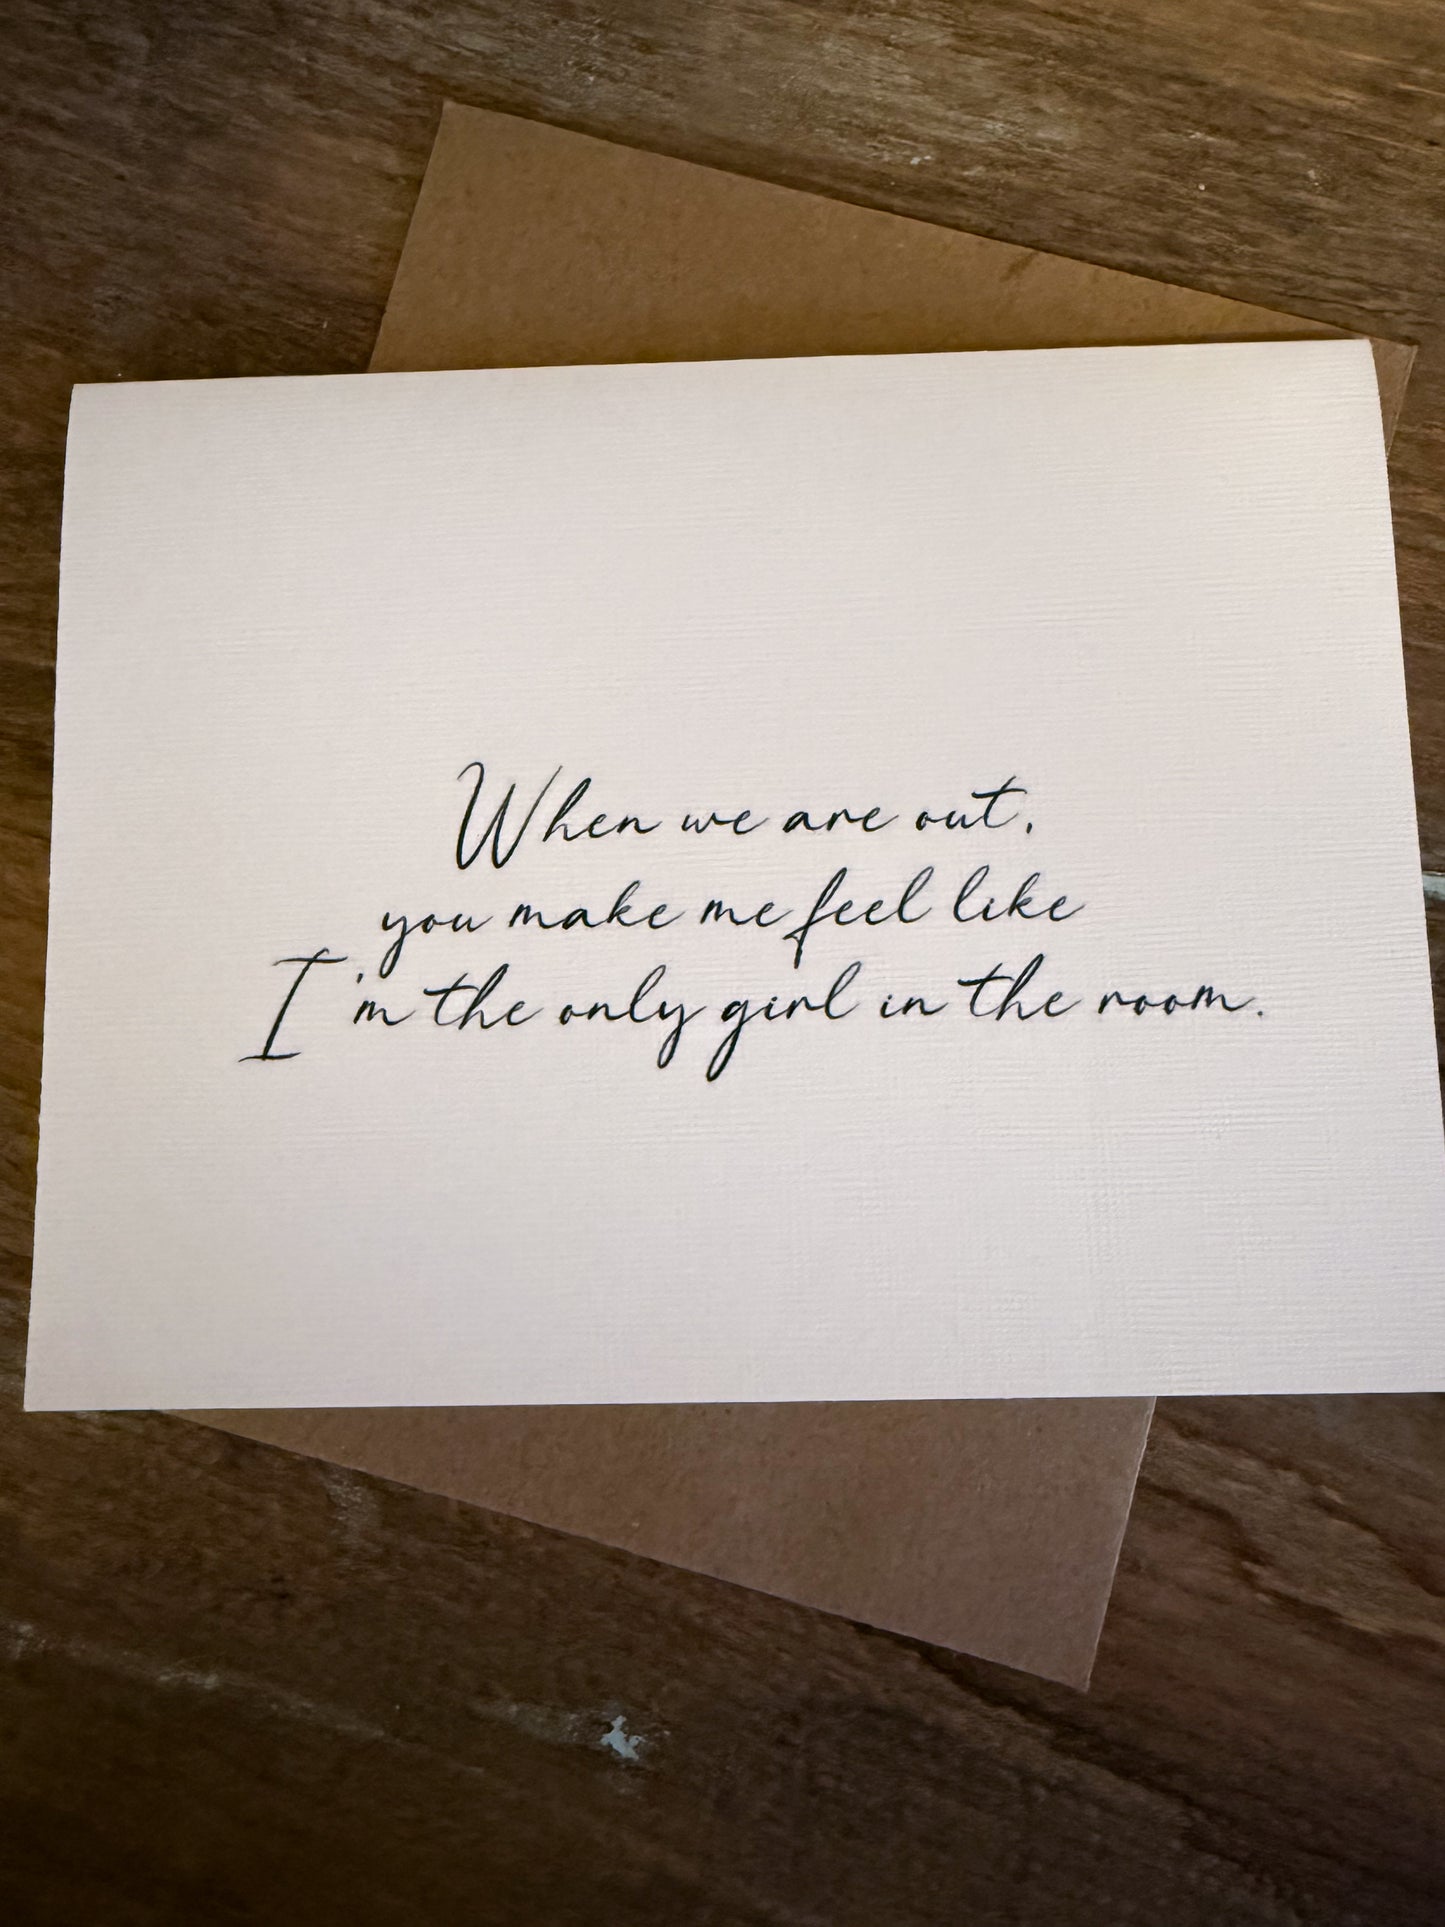 When we are out,
you make me feel like
I'm the only girl in the room.